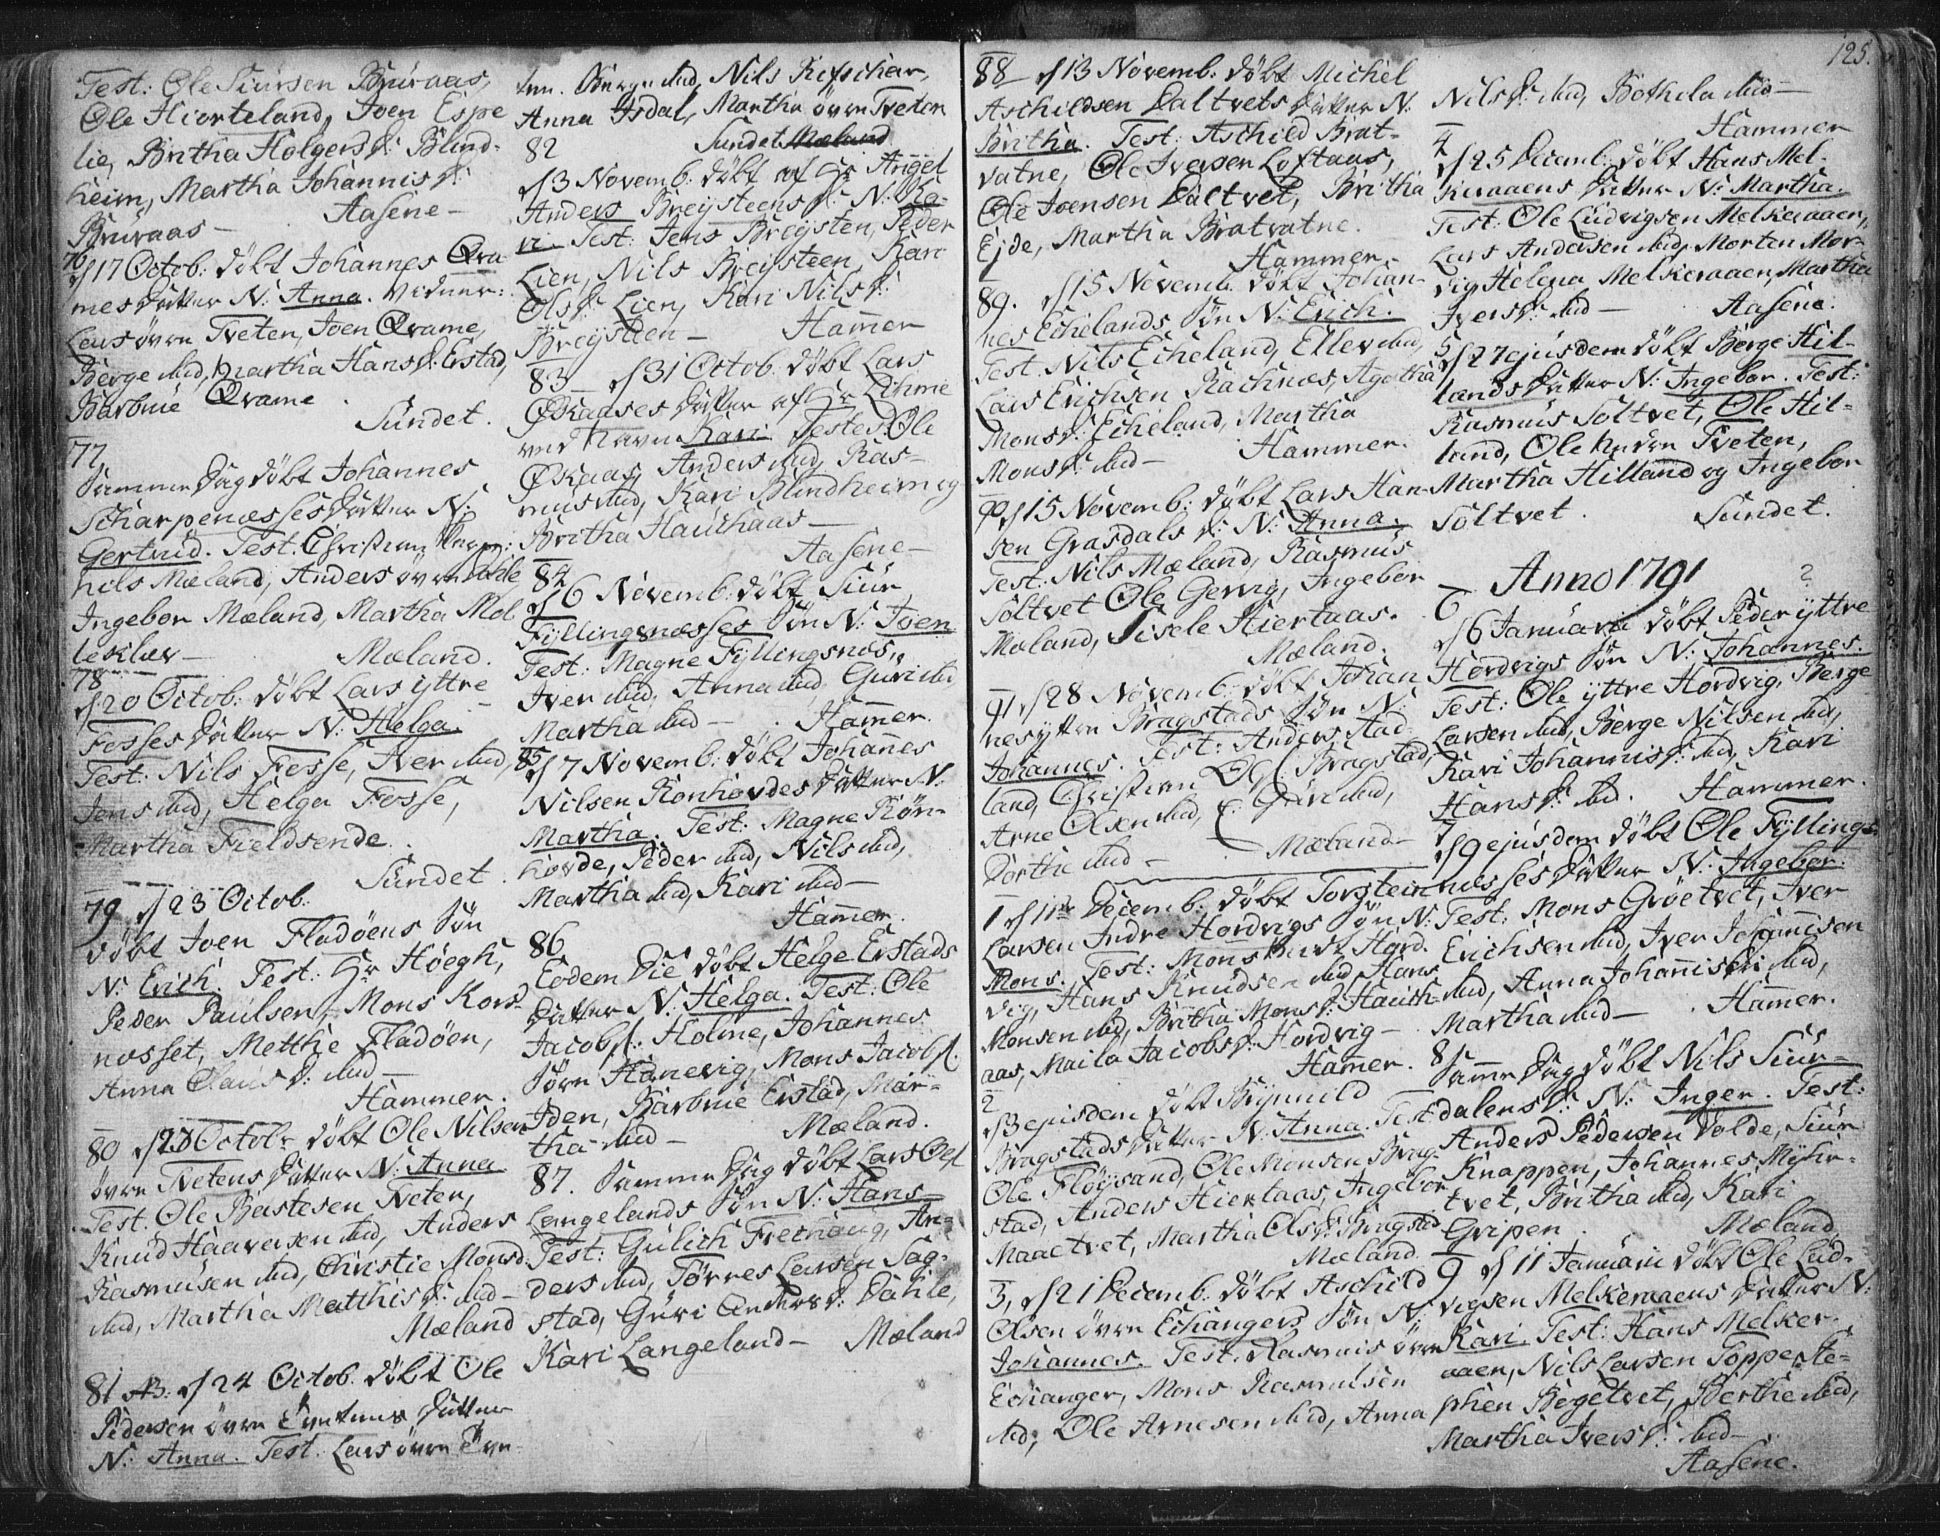 Test: Ole Siursen Bruraas,
Ole Hiorteland, Joen Espe
lie, Britha Holgersd: Blind-
heim, Martha Johannisd:
Bruraas — Aasene —
76 d/17 Octob: døbt Johannes Qva
mes Datter N: Anna. Vidner:
Lars øvre Tveten, Joen Qvame,
Berge ibid, Martha Hansd: Erstad,
Barbrue Qvame.
Sundet.
77
Samme Dag døbt Johannes
Scharpenæsses Datter N:
Gertrud. Test: Christian
Nils Mæland, Anders øvre
Ingebor Mæland, Martha Mol
leklev — Mæland.
78
d/20 Octob: døbt Lars yttre
Fosses Datter N: Helga.
Test: Nils Fosse, Iver ibid,
Jens ibid, Helga Fosse,
Martha Fieldsende.
Sundet.
79 d/23 Octob:
døbt Joen Fladøens Søn
N: Erich. Test: Hr Høegh,
Peder Paulsen, Mons Kors-
nosset, Metthe Fladøen,
Anna Clausd: ibid —
Hammer.
80 d/23 Octobr døbt Ole Nilsen
øvre Tvetens Datter N: Anna
Test. Ole Bastesen Tveten,
Knud Haaversen ibid, Anders
Rasmusen ibid, Christie Monsd:
ibid, Martha Matthisd: ibid —
Mæland
81 d/24 Octob. døbt Ole
Pedersen øvre Tvetens Datter
N: Anna. Test. Lars øvre Tve-
ten. Berge ibid, Nils Refschar,
Anna Isdal, Martha øvre Tveten
Sundet
82
d/3 Novemb: døbt af Hr Angel
Anders Breysteens D: N: Ka-
ri. Test: Jens Breysten, Peder
Lien, Nils Breysteen, Kari
Olsd: Lien, Kari Nilsd:
Breysteen — Hammer
83 — d/31 Octob. døbt Lars
Økaases Datter af Hr Lihme
ved Navn Kari. Testes Ole
Økaas, Anders ibid, Ras-
mus ibid, Kari Blindheim og
Britha Hauchaas —
Aasene —
84
d/6 Novemb: døbt Siur
Fyllingsnæsses Søn N: Joen
Test: Magne Fyllingsnos,
Iver ibid, Anna ibid, Guri ibid
Martha ibid — Hammer.
85 d/7 Novemb: døbt Johannes
Nilsen Rønhovdes Datter N:
Martha. Test: Magne Røn-
hovde, Peder ibid, Nils ibid,
Martha ibid, Kari ibid —
Hammer.
86
Eodem Die døbt Helge Erstads
Datter N: Helga. Test: Ole
Jacobs: Holme, Johannes
Søre Hanevig, Mons Jacobs:
Iden, Barbrue Erstad, Mar-
tha ibid — Mæland.
87. Samme Dag døbt Lars Ols
Langelands Søn N: Hans
Test: Gulich Frechaug, An-
ders ibid, Tørres Larsen Sag-
stad, Guri Andersd: Dahle,
Kari Langeland — Mæland
125.
88 d/13 Novemb: døbt Michel
Aschildsen Daltvets Datter N.
Britha. Test: Aschild Brat-
vatne, Ole Iversen Loftaas,
Ole Joensen Daltvet, Britha
Eide, Martha Bratvatne.
Hammer.
89. d/15 Novemb. døbt Johan-
nes Echelands Søn N: Erich.
Test. Nils Echeland, Ellev ibid,
Lars Erichsen Rachnæs, Agatha
Monsd: Echeland, Martha
Monsd: ibid — Hammer.
90 d/15 Novemb: døbt Lars Han-
sen Grasdals D: N: Anna.
Test: Nils Mæland, Rasmus
Soltvet Ole Gervig, Ingebor
Mæland, Sisele Hiertaas.
Mæland.
91 d/28 Novemb: døbt Johan
nes yttre Bragstads Søn N:
Johannes. Test: Anders Aad-
land, Christian Ols: Bragstad,
Arne Olsen ibid, Guri ibid,
Dorthe ibid — Mæland —
1 d/11te Decemb: døbt Torstein
Larsen Indre Hordvigs Søn N:
Mons. Test: Mons Hord-
vig, Hans Knudsen ibid, Hans
Monsen ibid, Britha Monsd: Hauch-
aas, Maila Jacobsd: Hordvig —
Hammer.
2
d/3 ejusdem døbt Brynnild
Bragstads Datter N: Anna. Test:
Ole Fløysand, Ole Monsen Brag-
stad, Anders Hiertaas, Ingebor
Maaetvet, Martha Olsd: Bragstad
Mæland.
3, d/21 Decemb: døbt Aschild
Olsen øvre Echangers Søn N:
Johannes. Test. Rasmus øvre
Echanger, Mons Rasmusen
ibd, Ole Arnesen ibid, Anna
Nilsd: ibid, Bothila ibid —
Hammer
4
d/25 Decemb: døbt Hans Mel-
keraaens Datter N: Martha.
Test: Ole Ludvigsen Melkeraaen,
Lars Andersen ibid, Morten Mor-
vig Helena Melkeraaen, Martha
Iversd: ibid — Aasene.
5
d/27 ejusdem døbt Berge Hil-
lands Datter N: Ingebor. Test:
Rasmus Soltvet, Ole Hil-
land, Ole Nedre Tveten,
Martha Hilland og Ingebor
Soltvet. Sundet.
Anno 1791
6
d/6 Januarii døbt Peder yttre
Hordvigs Søn N: Johannes.
Test: Ole yttre Hordvig, Berge
Larsen ibid, Berge Nilsen ibid,
Kari Johannisd: ibid, Kari
Hansd: ibid. Hammer.
7
d/9 ejusdem døbt Ole Fyllings-
næsses Datter N: Ingebor.
Test: Mons Grøetvet, Iver
Erichsen ibid, Iver Johannisen
ibid, Anna Johannisd: ibid,
Martha ibid — Hammer.
8
Samme Dag døbt Nils Siur-
dalens D: N: Inger. Test:
Anders Pedersen Dolde, Siur
Knappen, Johannes Myhr-
tvet, Britha ibid, Kari
Gripen. Mæland
9 d/11 Januarii døbt Ole Lud-
vigsen Melkeraaens Datter N:
Kari. Test: Hans Melker-
aaen, Nils Larsen Toppe, Ste-
phen Begetvet, Berthe ibid,
Martha Iversd: ibid —
Aasene.